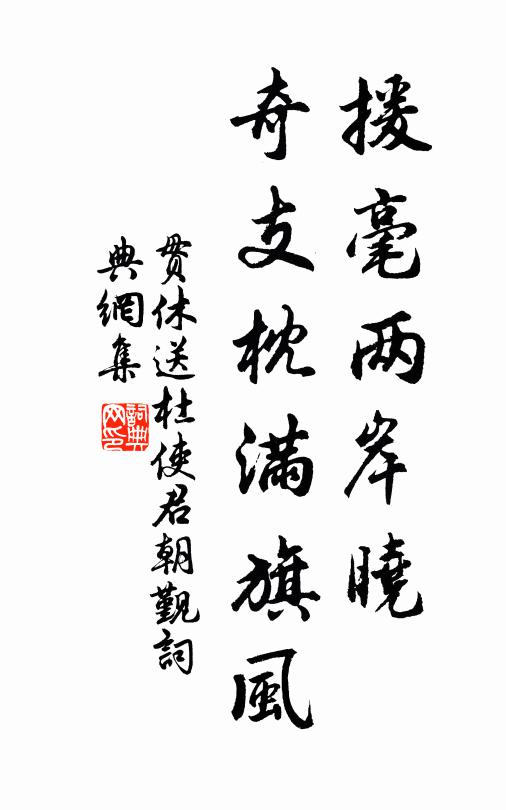 援毫两岸曉
奇支枕滿旗風
貫休送杜使君朝覲詞
典網集
詞典
网印